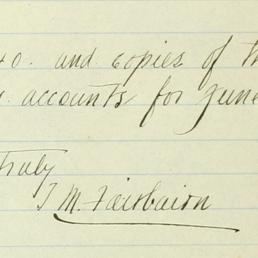 40. and copies of th
. accounts for June
Truly
J M. Fairbairn